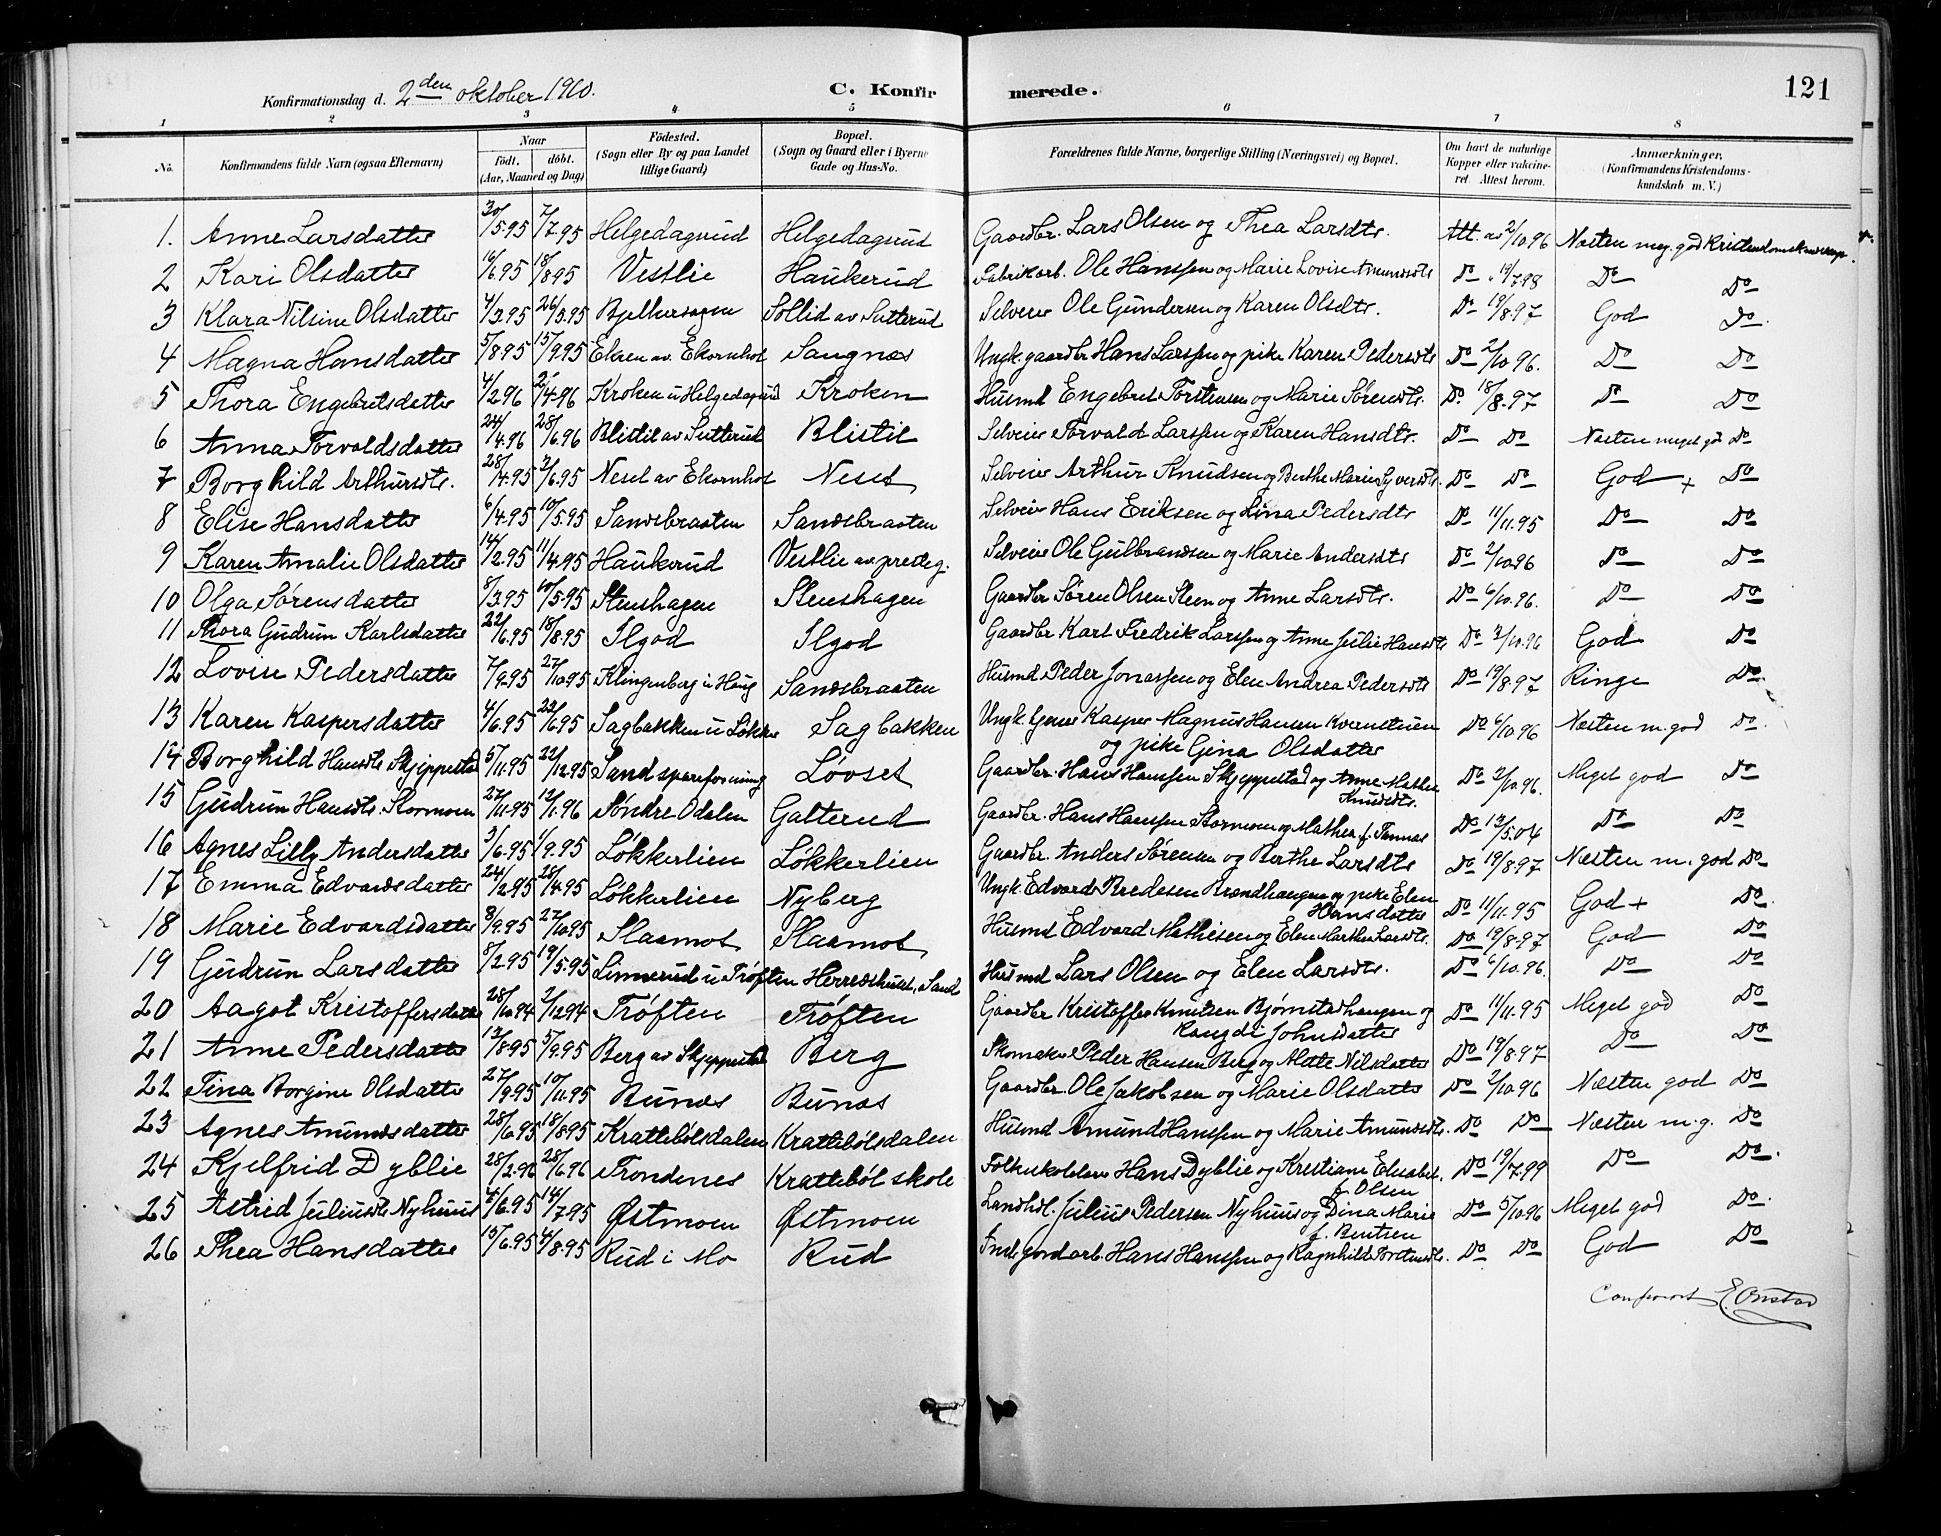 Konfirmationsdag d. 2den oktober 1910. C. Konfirmerede. 121
1 2 3 4 5 6 7 8
No. Konfirmandens fulde Navn (ogsaa Efternavn) Naar født. døbt. (Aar, Maaned og Dag) Fødested. (Sogn eller By og paa Landet tillige Gaard) Bopæl. (Sogn og Gaard eller i Byerne Gade og Hus-No. Forældrenes fulde Navne, borgerlige Stilling (Næringsvei) og Bopæl. Om havt de naturlige Kopper eller vakcineret. Attest herom. Anmærkninger. (Konfirmandens Kristendomskundskab m. V.)
1. Anne Larsdatter 30/5.95 7/7.95 Helgedagsrud Helgedagsrud Gaardbr. Lars Olsen og Thea Larsdtr. Att. av 2/10.96 Næsten meg. god
2 Kari Olsdatter 16/6.95 18/8.95 Vestlie Haukerud Fabrikarb. Ole Hanssen og Marie Lovise Amundsdtr Do 19/7.98 Do Do
3 Klara Nilsine Olsdatter 4/3.95 26/5.95 Sollid av Sutterud Selveier Ole Gundersen og Karen Olsdtr. Do 19/8.97 God Do.
4 Magna Hansdatter 5/8.95 15/9.95 Ekren av Ekornhol Sangnæs Ungk. gaardbr Hans Larssen og pike Karen Pedersdtr Do 2/10.96. Do Do
5 Thora Engebretsdatter 4/2.96 /4.96 Kroken u Helgedagsrud Kroken Husmd Engebret Torstensen og Marie Sørensdtr. Do. 18/8.97 Do Do
6 Anna Torvaldsdatter 24/4.96 28/6.96 Blistil av Sutterud Blistil Selveier Torvald Larssen og Karen Hansdtr. Do Do Næsten meget gd Do
7 Borghild Arthursdtr. 28/4.95 2/6.95 Neset av Ekornhol Neset Selveier Arthur Knudsen og Berthe Marie Syversdtr. Do Do God + Do
8 Elise Hansdatter 6/4.95 10/5.95 Sandsbraaten Sandsbraaten Selveier Hans Eriksen og Lina Pedersdtr Do 11/11.95 Do Do
9 Karen Amalie Olsdatter 14/2.95 11/4.95 Haukerud Vestlie av presteg. Selveier Ole Gulbrandsen og Marie Andersdtr Do 2/10.96 Do Do
10 Olga Sørensdatter 8/3.95 10/5.95 Stenshagen Stenshagen Gaardbr Søren Olsen Steen og Anne Larsdtr. Do 6/10.96. Do Do
11 Thora Gudrun Karlsdatter 22/6.95 18/8.95 Ilgod Ilgod Gaardbr Karl Fredrik Larssen og Anne Julie Hansdtr Do 2/10.96 God Do
12 Lovise Pedersdatter 7/9.95 27/10.95 Klingenberg u Haug Sandsbraaten Husmd Peder Jonassen og Elen Andrea Pedersdtr Do 19/8.97 Ringe Do.
13 Karen Kaspersdatter 4/6.95 23/6.95 Sagbakken u Løkker Sagbakken Ungk. Kasper Magnus Hansen Kvernstuen Do 6/10.96 Næsten m. god Do.
og pike Gina Olsdatter
14 Borghild Hansdtr Skjeppestad 5/11.95 22/12.95 Sand Løvset Gaardbr. Hans Hanssen Skjeppestad og Anne Mathea Do 2/10.96. Meget god Do
Knudsdtr.
15 Gudrun Hansdtr. Stormoen 27/11.95 12/1.96 Søndre Odalen Galterud Gaardbr. Hans Hanssen Stormoen og Mathea f. Tannæs Do 13/5.04 Do Do
16 Agnes Lilly Andersdatter 3/6.95 1/9.95 Løkkerlien Løkkerlien Gaardbr. Anders Sørensen og Berthe Larsdtr Do 19/8.97 Næsten m. god Do
17 Emma Edvardsdatter 24/2.95 28/4.95 Løkkerlien Nyberg Ungk. Edvard Bredesen Brændhaugen og pike Elen Do 11/11.95 God + Do.
Hansdatter
18 Marie Edvardsdatter 8/9.95 27/10.95 Slaamot Slaamot Husmd Edvard Mathisen og Elen Marthea Larsdtr. Do 19/8.97 God Do
19 Gudrun Larsdatter 8/2.95 19/5.95 Linnerud u Trøften Herredshuset, Sand Husmd Lars Olsen og Elen Larsdtr. Do 6/10.96. Do Do
20 Aagot Kristoffersdatter 28/10.94 2/12.94 Trøften Trøften Gaardbr Kristoffer Knutsen Bjørnstadhaugen og Do 11/11.95 Meget god Do
Rangdi Johnsdatter
21 Anne Pedersdatter 12/8.95 5/9.95 Berg av Skjeppestad Berg Skomaker Peder Hansen Berg og Mette Nilsdatter Do 19/8.97 Do Do
22 Tina Borgine Olsdatter 27/9.95 10/11.95 Bunæs Bunæs Gaardbr Ole Jakobsen og Marie Olsdatter Do 2/10.96 Næsten god Do
23 Agnes Amundsdatter 28/6.95 18/8.95 Krattebølsdalen Krattebølsdalen Husmd Amund Hanssen og Marie Amundsdtr. Do Do Næsten m. g. Do
24 Kjelfrid Dyblie 28/2.96 28/6.96 Trondenes Krattebøl skole Folkeskolelærer Hans Dyblie og Kristiane Elisabet Do 19/7.99 Do Do.
f. Olsen
25 Astrid Juliusdtr Nyhuus 4/6.95 14/7.95 Østmoen Østmoen Landhdl. Julius Pedersen Nyhuus og Dina Marie Do 5/10.96 Meget god Do.
f. Bentsen
26 Thea Hansdatter 15/6.95 4/8.95 Rud i Mo Rud Hans Hanssen og Ragnhild Torstensdtr. Do Do God Do
Conferert E. Onstad